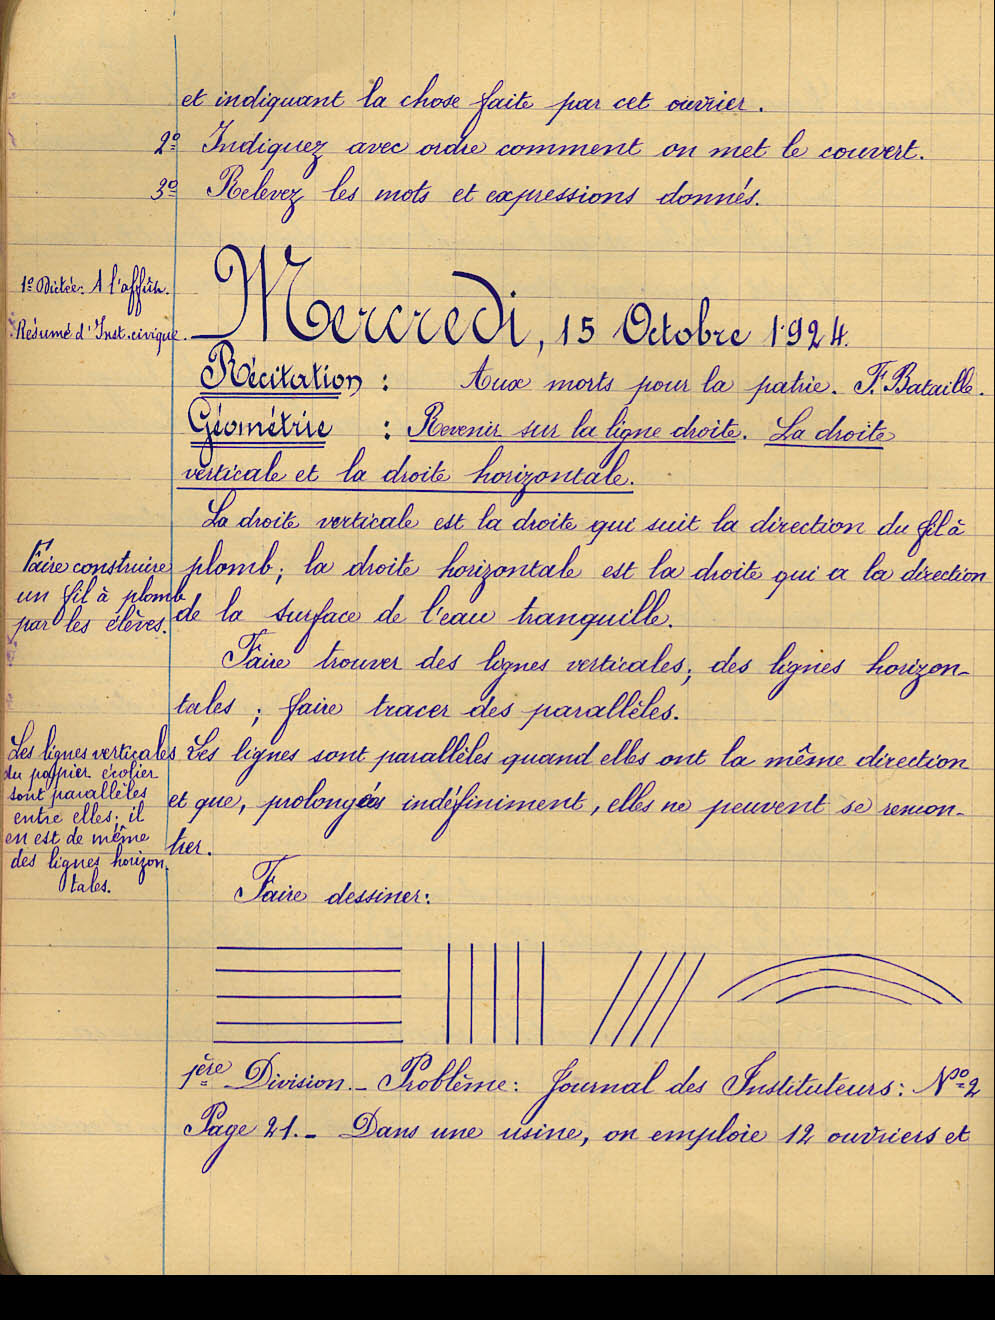 et indiquant la chose faite par cet ouvrier.
2º Indiquez avec ordre comment on met le couvert.
3º Relevez les mots et expressions donnés.
1º Dictée. A l'affût.
Résumé d'Inst. civique.
Mercredi, 15 Octobre 1924.
Récitation : Aux morts pour la patrie. F. Bataille.
Géométrie : Revenir sur la ligne droite. La droite
verticale et la droite horizontale.
La droite verticale est la droite qui suit la direction du fil à
plomb; la droite horizontale est la droite qui a la direction
de la surface de l'eau tranquille.
Faire construire
un fil à plomb
par les élèves.
Faire trouver des lignes verticales; des lignes horizon-
tales ; faire tracer des parallèles.
Les lignes sont parallèles quand elles ont la même direction
et que, prolongées indéfiniment, elles ne peuvent se rencon-
trer.
Les lignes verticales
du papier écolier
sont parallèles
entre elles; il
en est de même
des lignes horizon
tales.
Faire dessiner:
1ère Division. - Problème: Journal des Instituteurs: Nº 2
Page 21. - Dans une usine, on emploie 12 ouvriers et